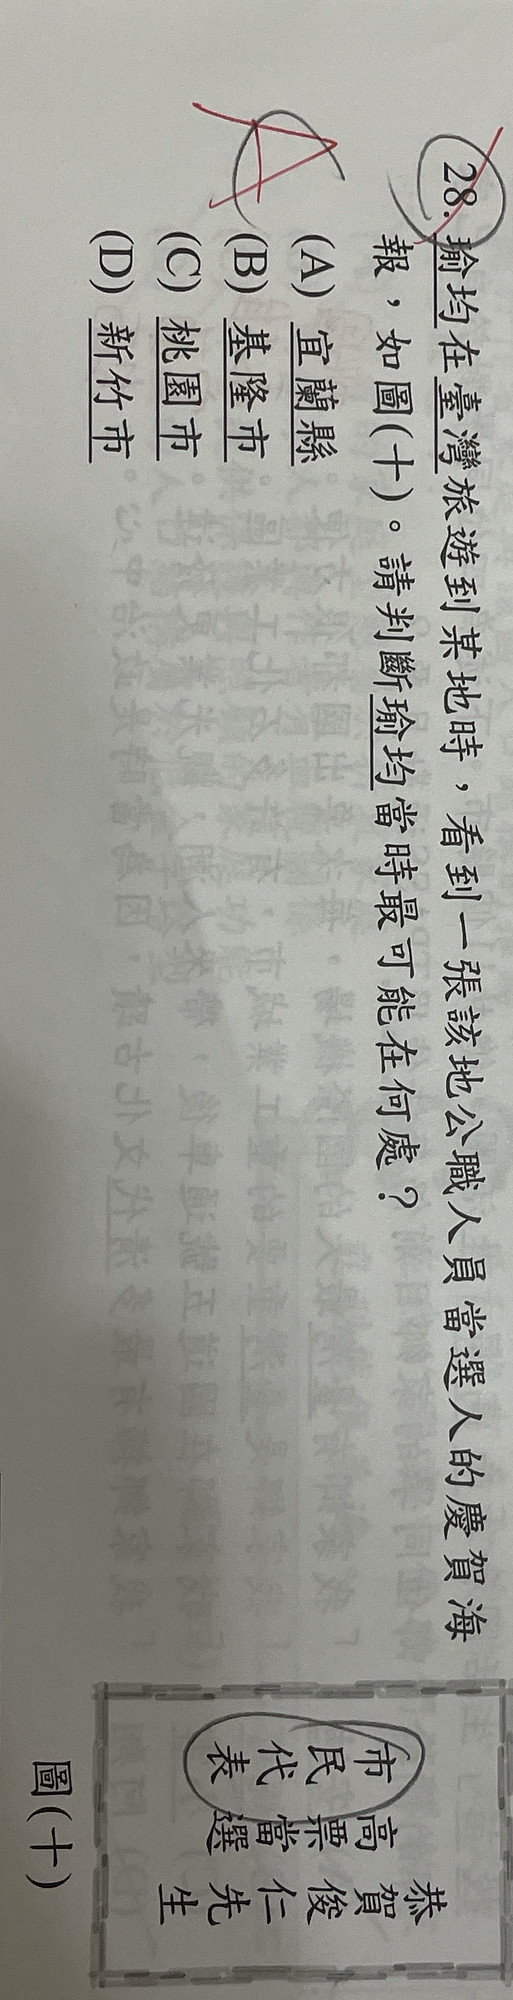 28. 瑜均在臺灣旅遊到某地時，看到一張該地公職人員當選人的慶賀海
報，如圖(十)。請判斷瑜均當時最可能在何處？
(A) 宜蘭縣
(B) 基隆市
(C) 桃園市
(D) 新竹市
A
恭賀俊仁先生
高票當選
市民代表
圖(十)